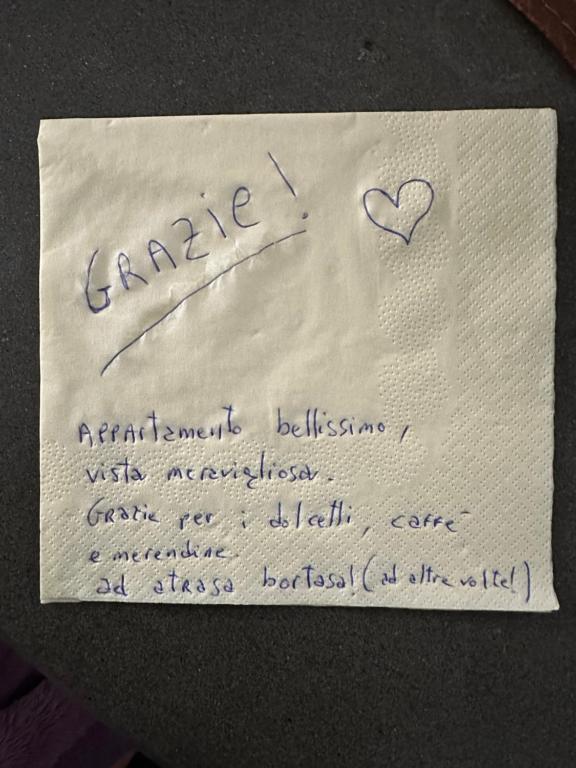 GRAZIE!
APPArtamento bellissimo,
vista meravigliosa.
GRAZIE per i dolcetti, caffè
e merendine.
ad atRasa bortasa! (ad altre volte!)